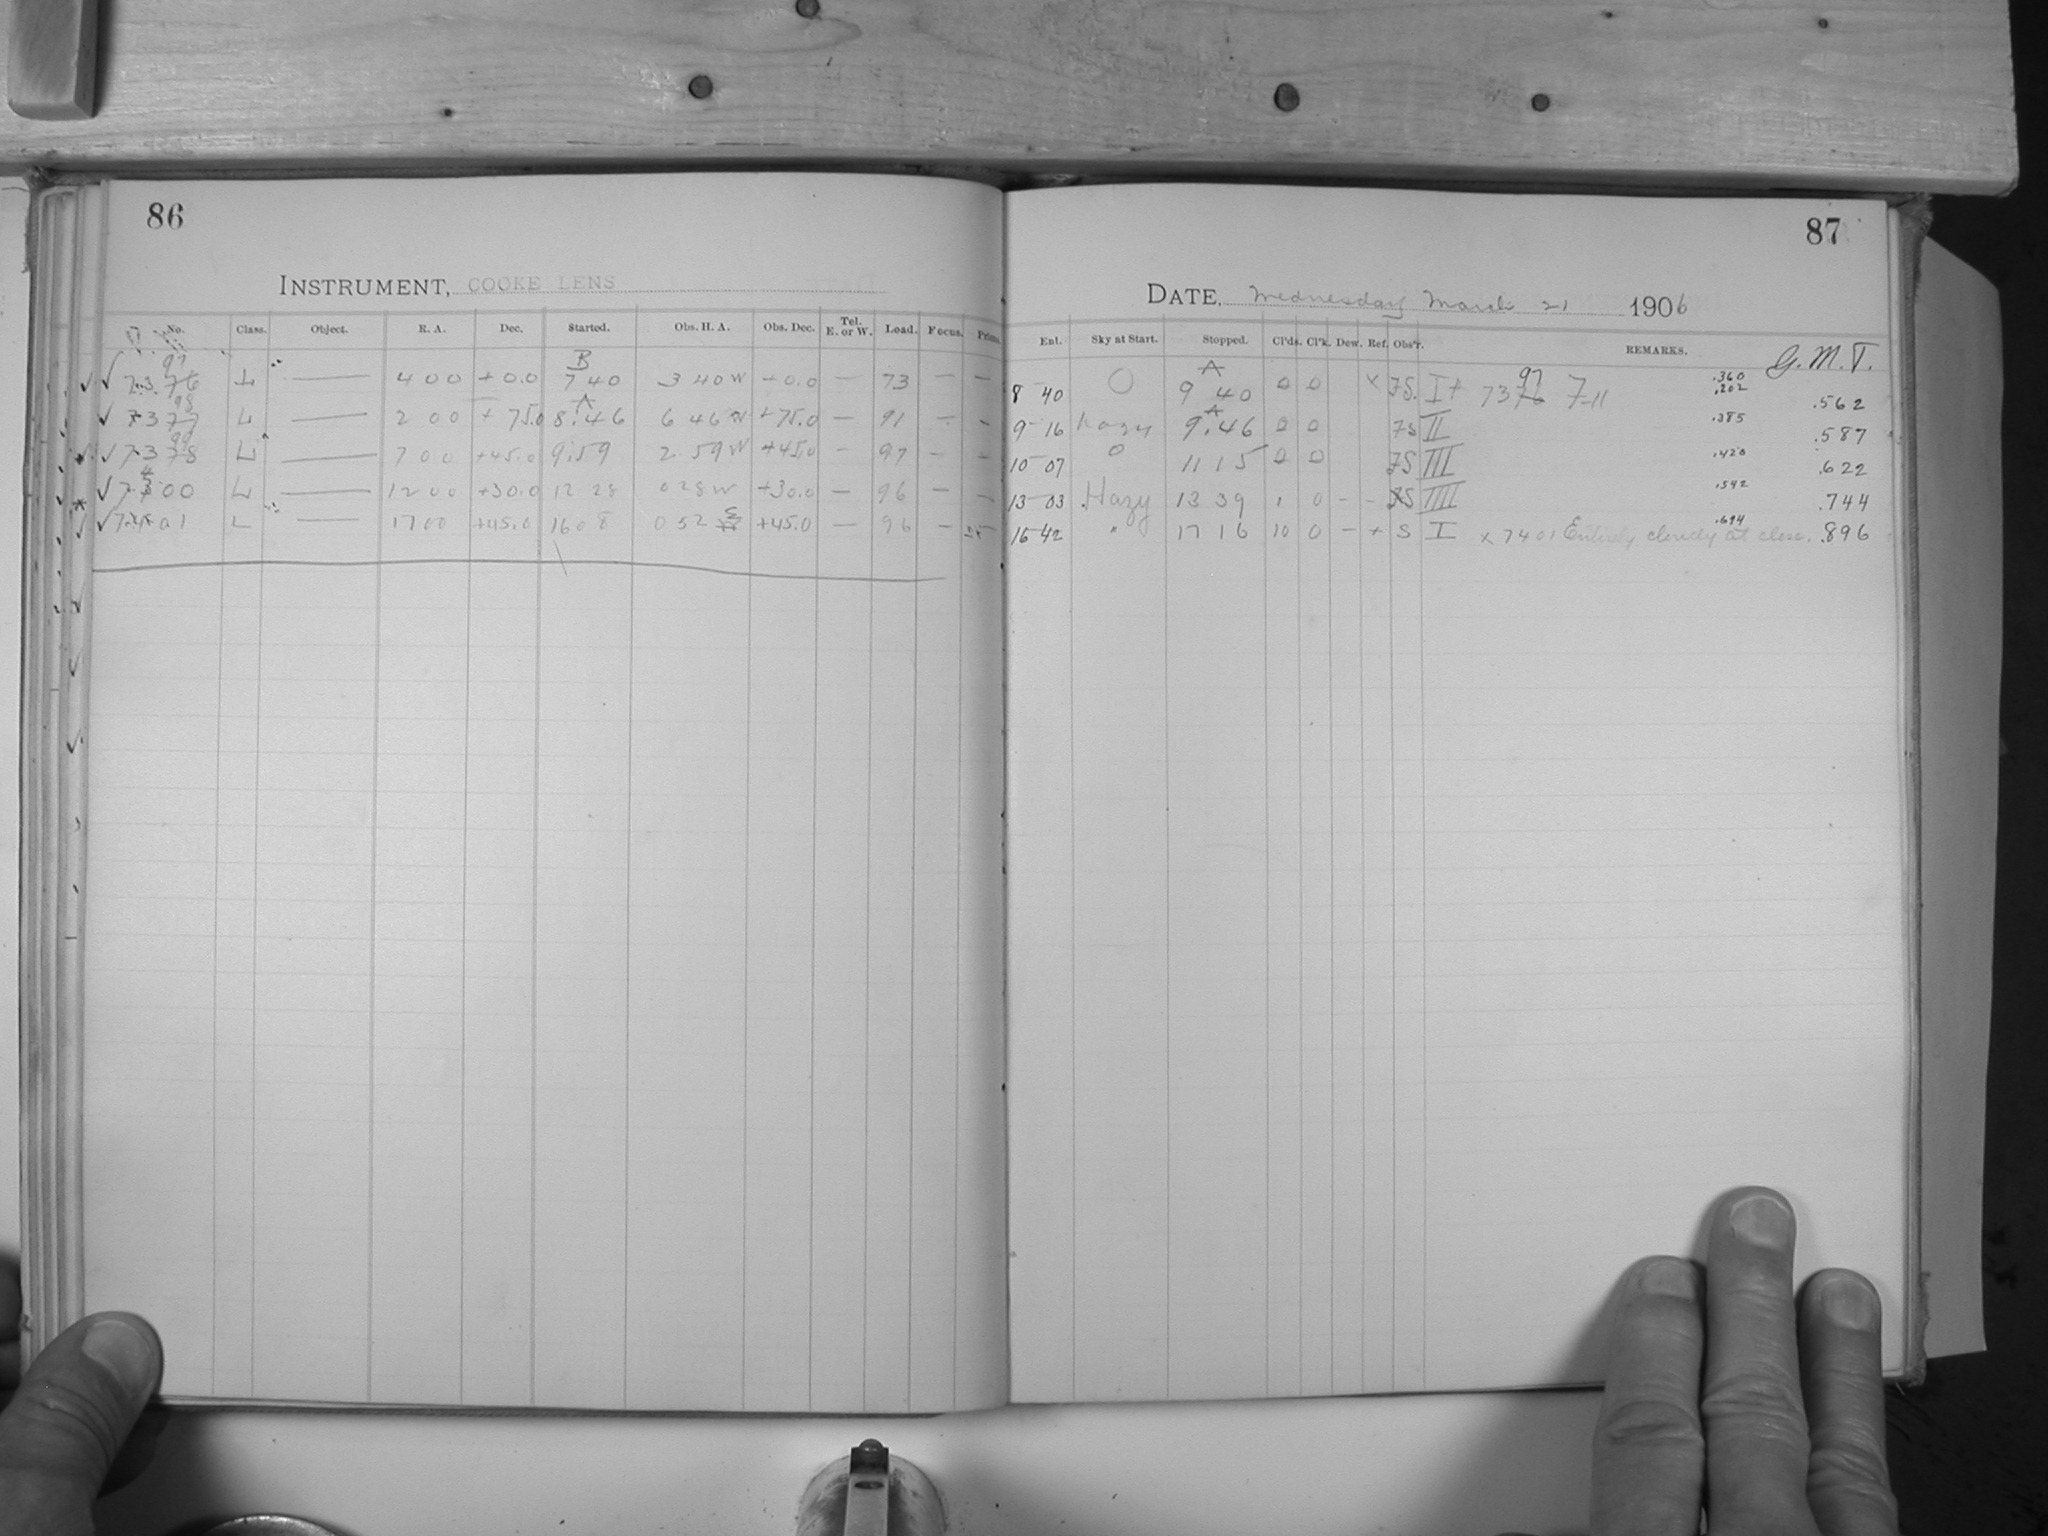 86
INSTRUMENT, COOKE LENS
No. Class. Object. R. A. Dec. Started. Obs. H. A. Obs. Dec. Tel. E. or W. Load. Focus. Prism.
97 B
7376 L — 4 00 +0.0 7 40 3 40 W +0.0 — 73 — —
98 A
7377 L — 2 00 +75.0 8.46 6 46 W +75.0 — 91 — —
99
7378 L — 7 00 +45.0 9.59 2.59 W +45.0 — 97 — —
4
7300 L — 12 00 +30.0 12 28 0 28 W +30.0 — 96 — —
7401 L — 17 00 +45.0 16 08 0 52 E +45.0 — 96 — —
87
DATE, Wednesday March 21 1906
Ent. Sky at Start. Stopped. Cl'ds. Cl'k. Dew. Ref. Obs'r. REMARKS. G. M. T.
A 97 .360
8 40 O 9 40 0 0 x FS. I + 7376 7-11 .202 .562
A
9-16 hazy 9.46 0 0 FS II .385 .587
10-07 0 11 15 0 0 FS III .420 .622
13-03 Hazy 13 39 1 0 – – S IIII .542 .744
16-42 " 17 16 10 0 – + S I x 7401 Entirely cloudy at close. .694 .896